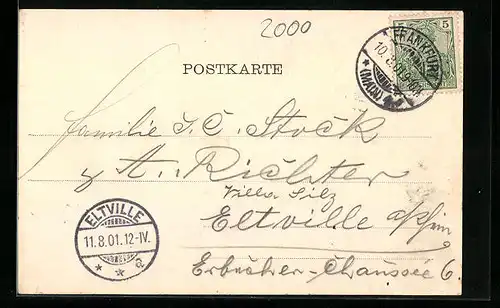 2000
5
FRANKFURT
10.8.01.
* (MAIN) *
POSTKARTE
Familie J. C. Stock
A. Richter
Villa Silz
Eltville a/Rhein
Erbacher-Chaussée 6.
ELTVILLE
11.8.01.12-IV.
* * a